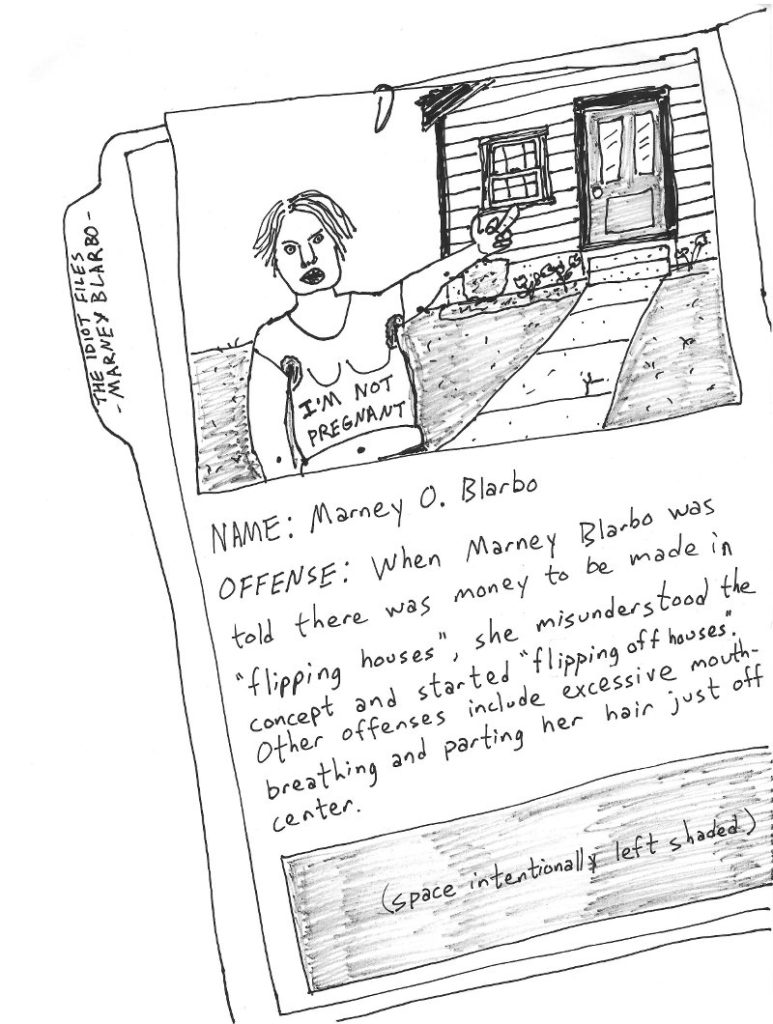 THE IDIOT FILES
- MARNEY BLARBO -
I'M NOT
PREGNANT
NAME: Marney O. Blarbo
OFFENSE: When Marney Blarbo was
told there was money to be made in
"flipping houses", she misunderstood the
concept and started "flipping off houses".
Other offenses include excessive mouth-
breathing and parting her hair just off
center.
(space intentionally left shaded)